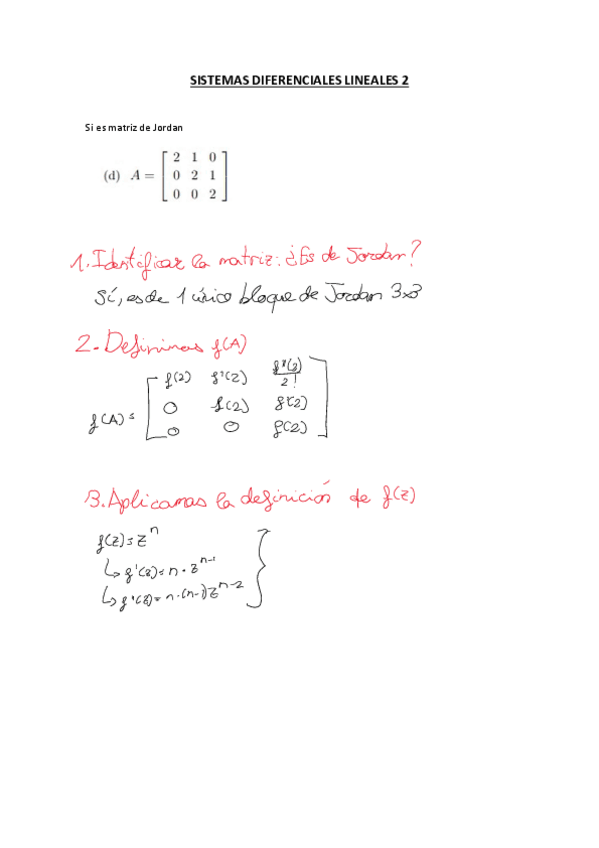 SISTEMAS DIFERENCIALES LINEALES 2
Si es matriz de Jordan
(d) A = [ 2 1 0
0 2 1
0 0 2 ]
1. Identificar la matriz: ¿Es de Jordan?
Sí, es de 1 único bloque de Jordan 3x3
2. Definimos f(A)
f(A) = [ f(2) f'(2) f''(2)/2!
0 f(2) f'(2)
0 0 f(2) ]
3. Aplicamos la definición de f(z)
f(z) = z^n
↳ f'(z) = n · z^n-1
↳ f''(z) = n · (n-1) z^n-2 }